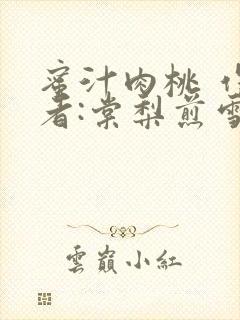 蜜汁肉桃 作
者:棠梨煎雪
雲嶺小紅